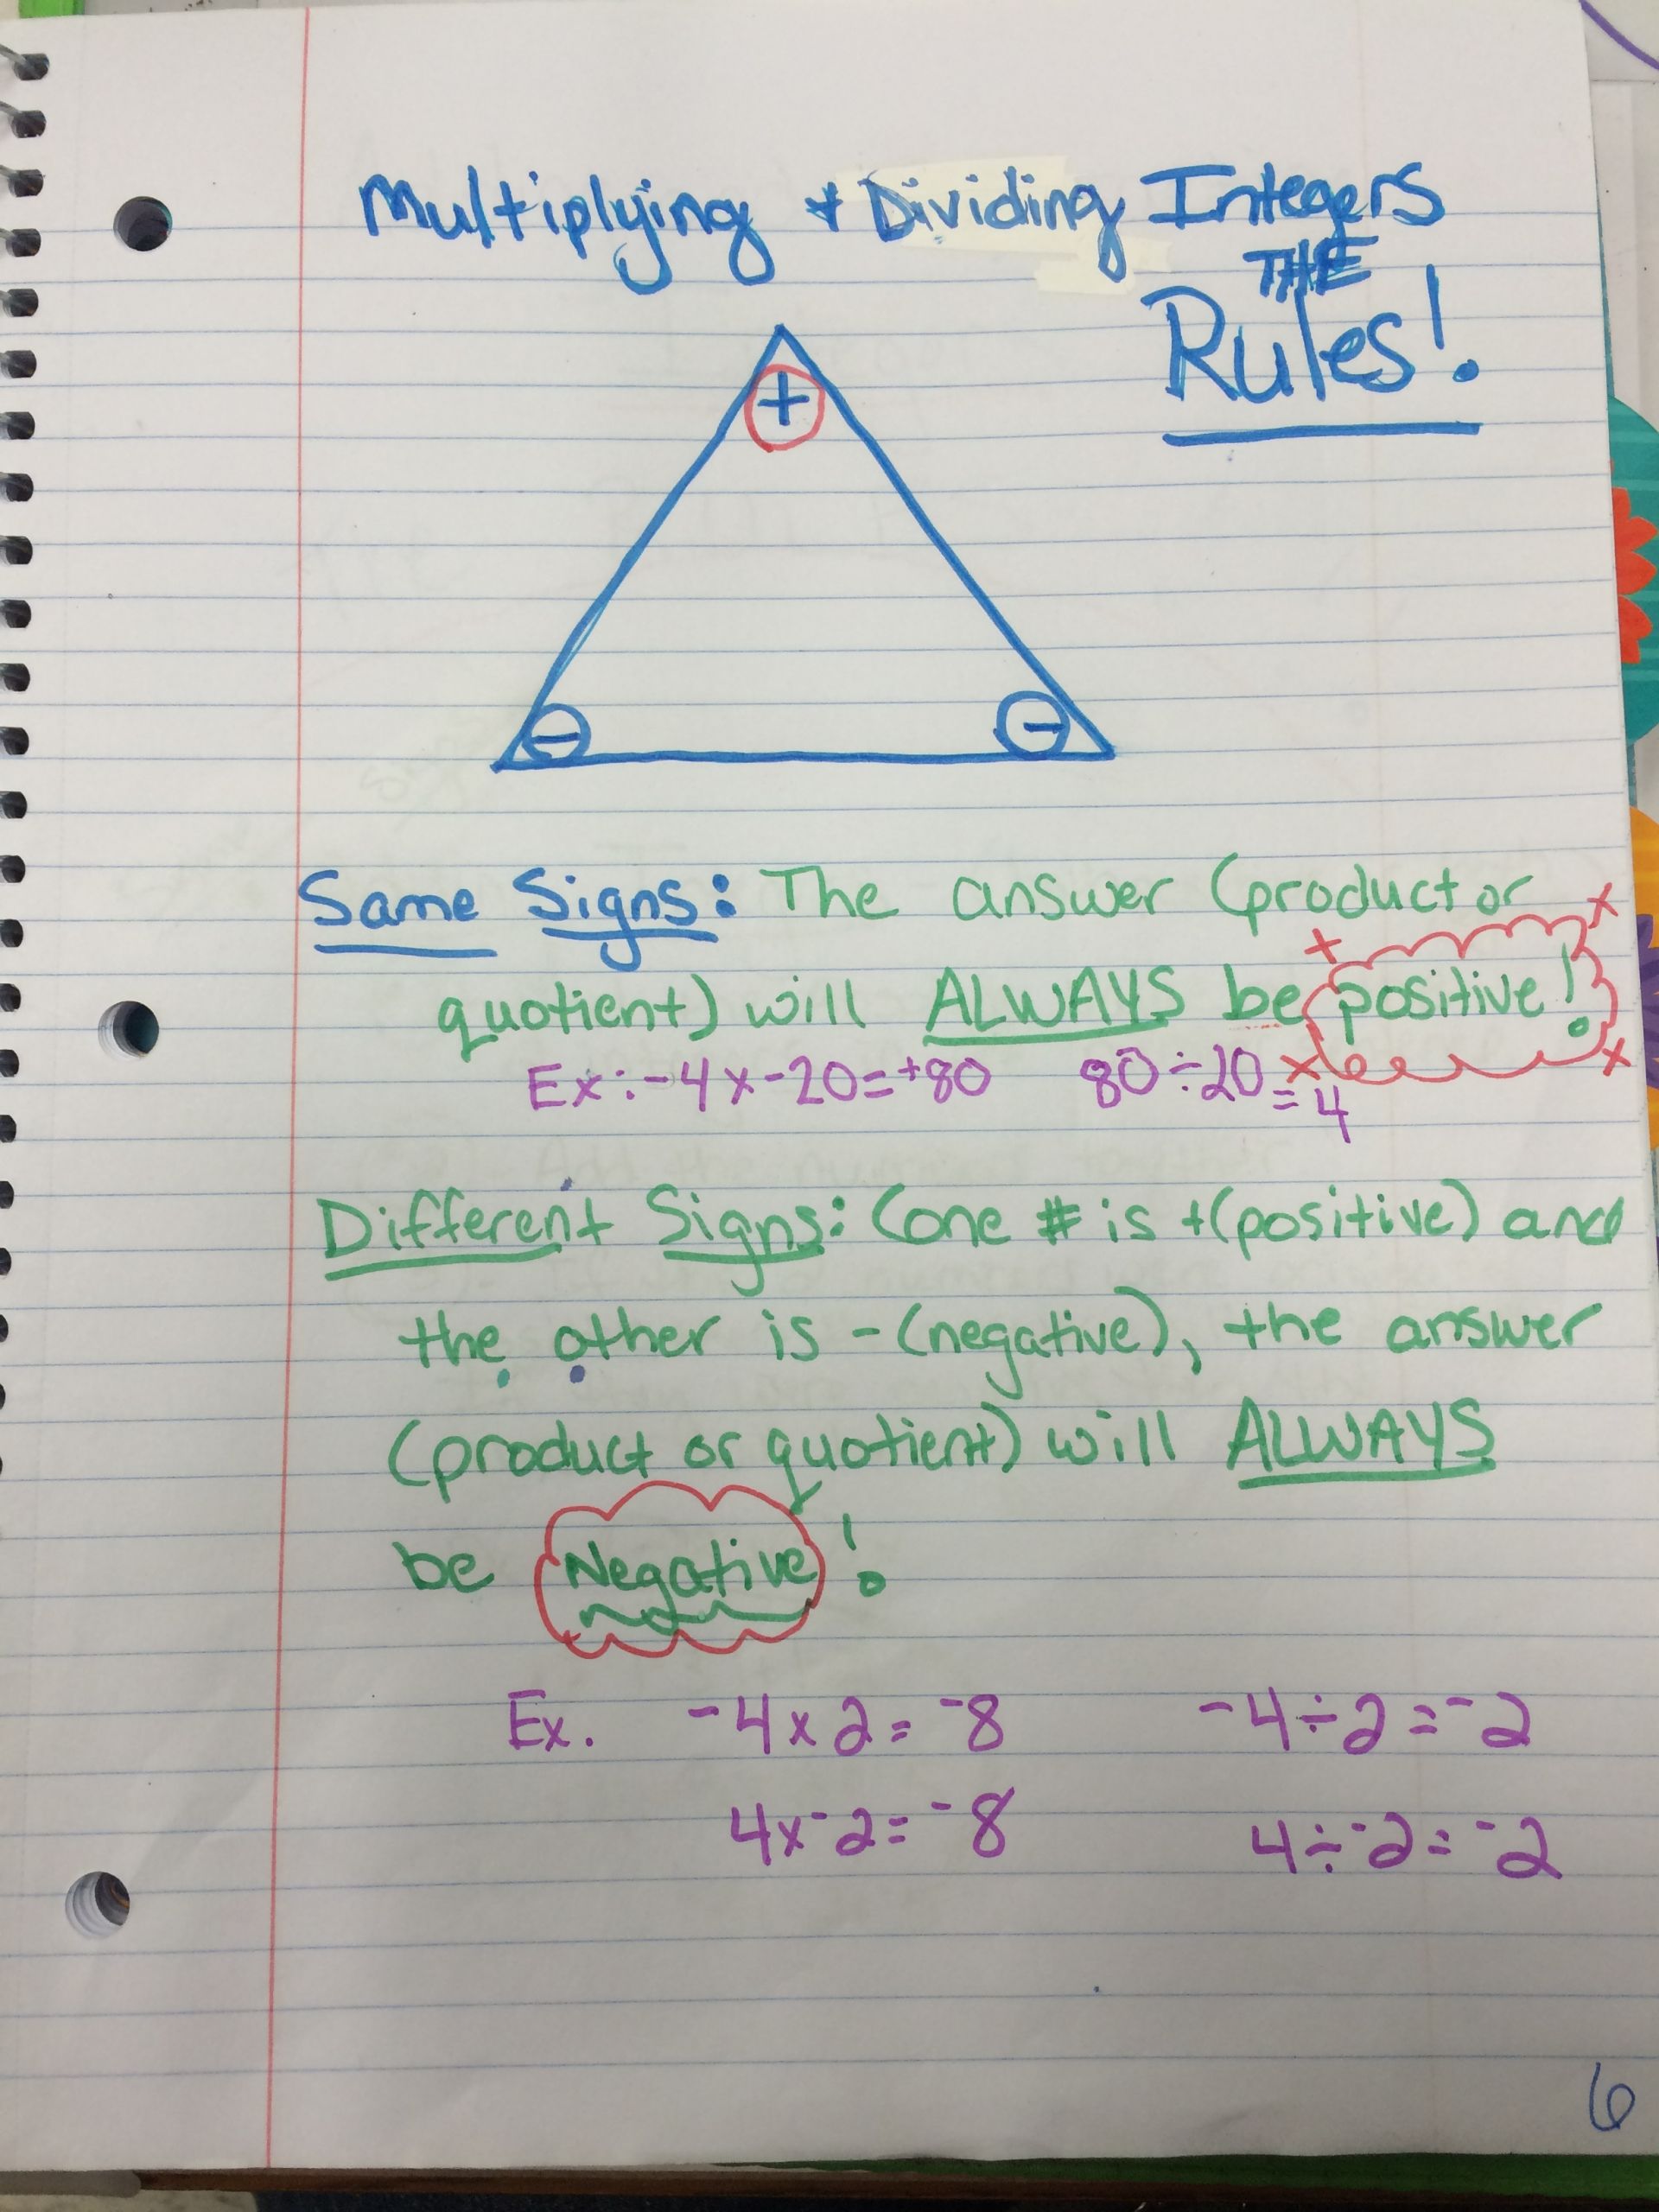 Multiplying + Dividing Integers
THE
Rules!
+
- -
Same Signs: The answer (product or
quotient) will ALWAYS be positive!
Ex: -4 x -20 = +80 80 ÷ 20 = 4
Different Signs: (one # is + (positive) and
the other is - (negative), the answer
(product or quotient) will ALWAYS
be Negative!
Ex. -4 x 2 = -8 -4 ÷ 2 = -2
4 x -2 = -8 4 ÷ -2 = -2
6